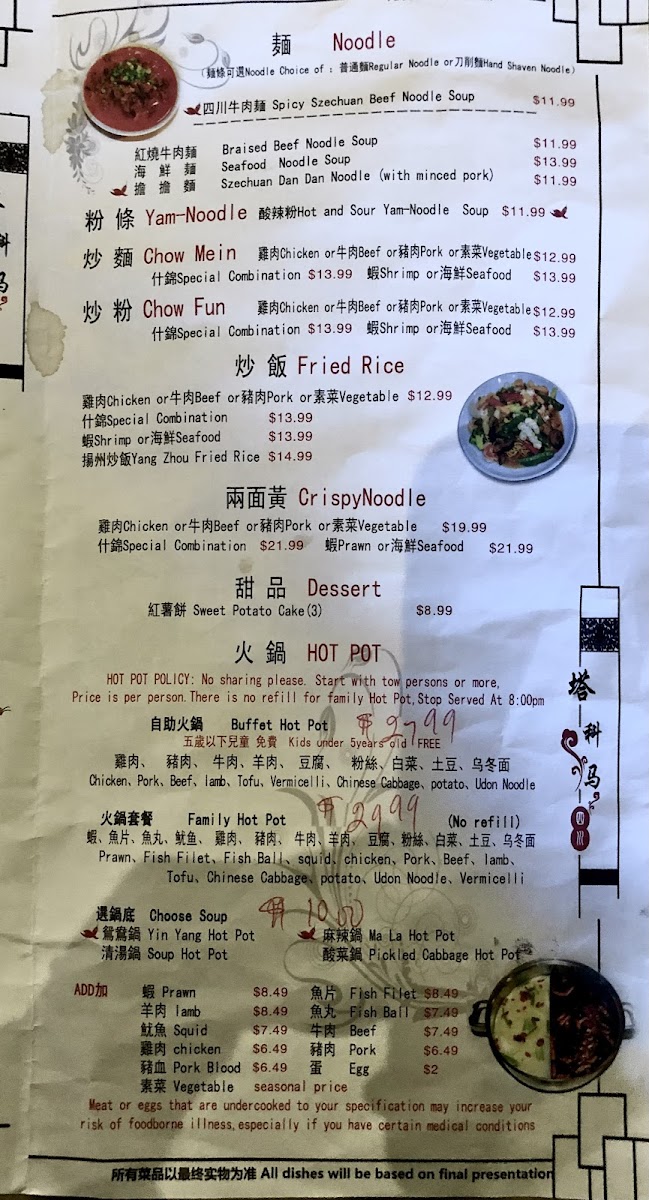 麵 Noodle
(麵條可選Noodle Choice of : 普通麵Regular Noodle or刀削麵Hand Shaven Noodle)
四川牛肉麵 Spicy Szechuan Beef Noodle Soup $11.99
紅燒牛肉麵 Braised Beef Noodle Soup $11.99
海 鮮 麵 Seafood Noodle Soup $13.99
擔 擔 麵 Szechuan Dan Dan Noodle (with minced pork) $11.99
粉 條 Yam-Noodle 酸辣粉Hot and Sour Yam-Noodle Soup $11.99
炒 麵 Chow Mein 雞肉Chicken or牛肉Beef or豬肉Pork or素菜Vegetable $12.99
什錦Special Combination $13.99 蝦Shrimp or海鮮Seafood $13.99
炒 粉 Chow Fun 雞肉Chicken or牛肉Beef or豬肉Pork or素菜Vegetable $12.99
什錦Special Combination $13.99 蝦Shrimp or海鮮Seafood $13.99
炒 飯 Fried Rice
雞肉Chicken or牛肉Beef or豬肉Pork or素菜Vegetable $12.99
什錦Special Combination $13.99
蝦Shrimp or海鮮Seafood $13.99
揚州炒飯Yang Zhou Fried Rice $14.99
兩面黃 CrispyNoodle
雞肉Chicken or牛肉Beef or豬肉Pork or素菜Vegetable $19.99
什錦Special Combination $21.99 蝦Prawn or海鮮Seafood $21.99
甜 品 Dessert
紅薯餅 Sweet Potato Cake(3) $8.99
火 鍋 HOT POT
HOT POT POLICY: No sharing please. Start with tow persons or more,
Price is per person.There is no refill for family Hot Pot,Stop Served At 8:00pm
自助火鍋 Buffet Hot Pot $27.99
五歲以下兒童 免費 Kids under 5years old FREE
雞肉、 豬肉、 牛肉、羊肉、 豆腐、 粉絲、白菜、土豆、乌冬面
Chicken、Pork、Beef、lamb、Tofu、Vermicelli、Chinese Cabbage、potato、Udon Noodle
火鍋套餐 Family Hot Pot $29.99 (No refill)
蝦、魚片、魚丸、魷鱼、 雞肉、 豬肉、 牛肉、羊肉、 豆腐、粉絲、白菜、土豆、乌冬面
Prawn、Fish Filet、Fish Ball、squid、chicken、Pork、Beef、lamb、
Tofu、Chinese Cabbage、potato、Udon Noodle、Vermicelli
選鍋底 Choose Soup $10.00
鴛鴦鍋 Yin Yang Hot Pot 麻辣鍋 Ma La Hot Pot
清湯鍋 Soup Hot Pot 酸菜鍋 Pickled Cabbage Hot Pot
ADD加 蝦 Prawn $8.49 魚片 Fish Filet $8.49
羊肉 lamb $8.49 魚丸 Fish Ball $7.49
魷魚 Squid $7.49 牛肉 Beef $7.49
雞肉 chicken $6.49 豬肉 Pork $6.49
豬血 Pork Blood $6.49 蛋 Egg $2
素菜 Vegetable seasonal price
Meat or eggs that are undercooked to your specification may increase your
risk of foodborne illness,especially if you have certain medical conditions
所有菜品以最终实物为准 All dishes will be based on final presentation
塔科马
四川
科
马